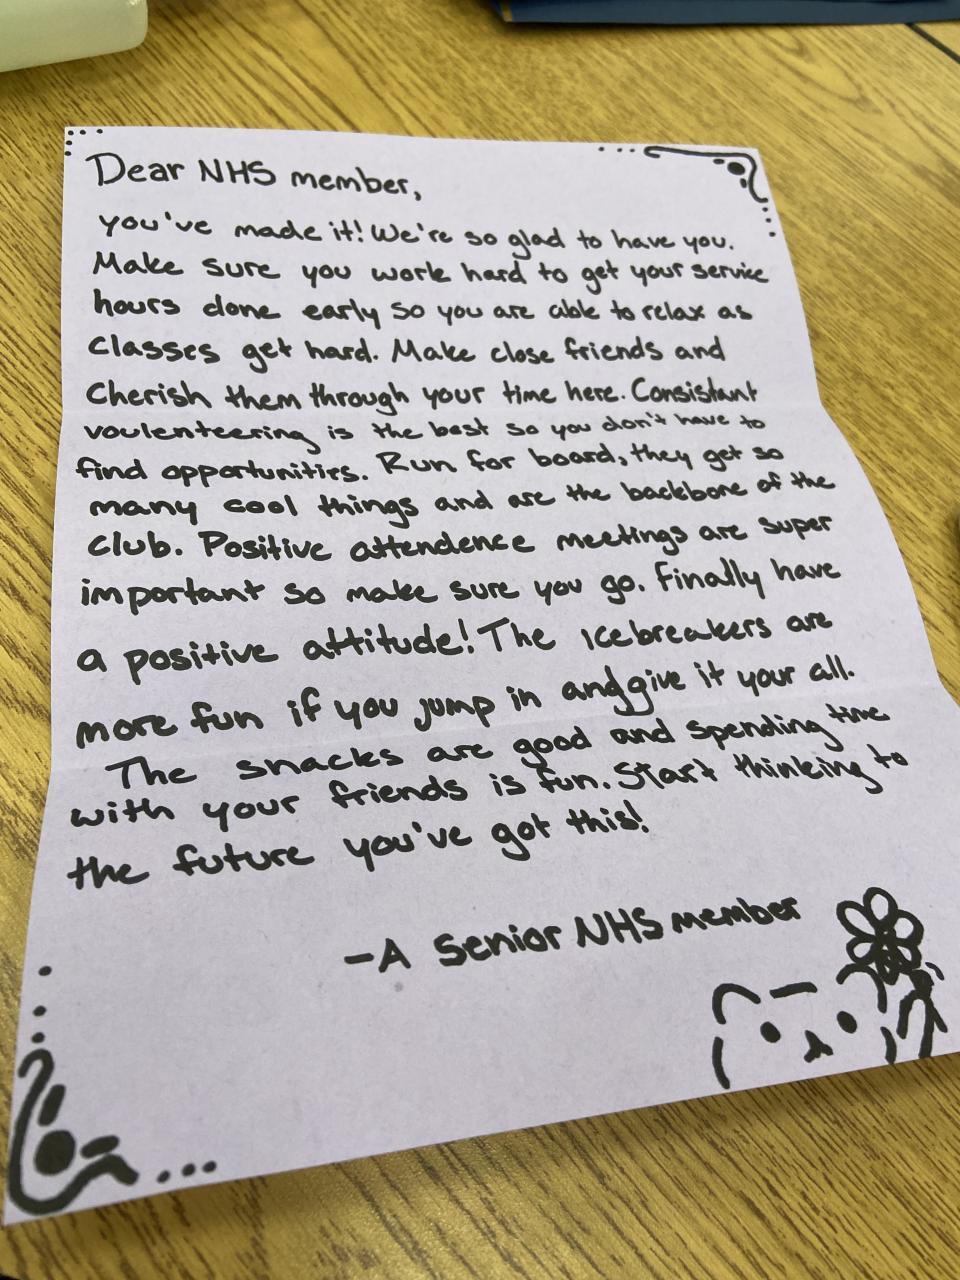 Dear NHS member,
you've made it! We're so glad to have you.
Make sure you work hard to get your service
hours done early so you are able to relax as
classes get hard. Make close friends and
Cherish them through your time here. Consistant
voulenteering is the best so you don't have to
find opportunities. Run for board, they get so
many cool things and are the backbone of the
club. Positive attendence meetings are super
important so make sure you go. Finally have
a positive attitude! The icebreakers are
more fun if you jump in and give it your all.
The snacks are good and spending time
with your friends is fun. Start thinking to
the future you've got this!
-A Senior NHS member